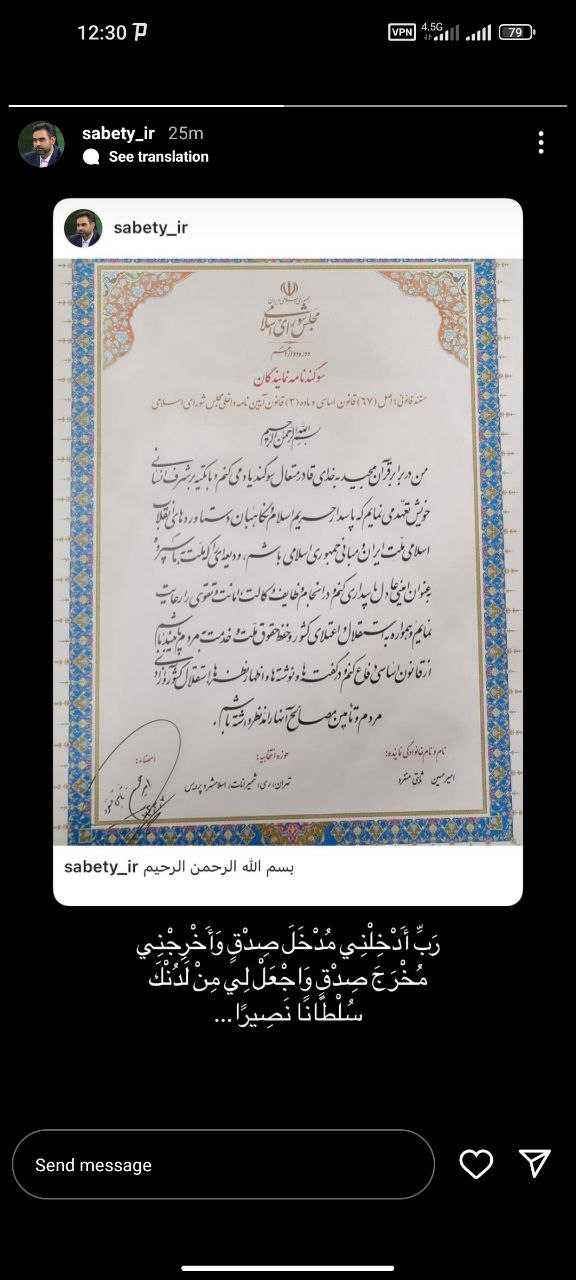 12:30
VPN
4.5G
79
sabety_ir 25m
See translation
sabety_ir
جمهوری اسلامی ایران
مجلس شورای اسلامی
دوره دوازدهم
سوگندنامه نمایندگان
مستند قانونی: اصل (۶۷) قانون اساسی و ماده (۳) قانون آیین نامه داخلی مجلس شورای اسلامی
بسم الله الرحمن الرحیم
من در برابر قرآن مجید به خدای قادر متعال سوگند یاد می کنم و با تکیه بر شرف انسانی
خویش تعهد می نمایم که پاسدار حریم اسلام و نگاهبان دستاوردهای انقلاب
اسلامی ملت ایران و مبانی جمهوری اسلامی باشم، ودیعه ای را که ملت به ما سپرده
به عنوان امینی عادل پاسداری کنم و در انجام وظایف وکالت، امانت و تقوی را رعایت
نمایم و همواره به استقلال و اعتلای کشور و حفظ حقوق ملت و خدمت به مردم پایبند باشم
از قانون اساسی دفاع کنم و در گفته ها و نوشته ها و اظهار نظرها، استقلال کشور و آزادی
مردم و تأمین مصالح آنها را مد نظر داشته باشم.
نام و نام خانوادگی نماینده: حوزه انتخابیه: امضاء:
امیرحسین ثابتی منفرد تهران، ری، شمیرانات، اسلامشهر و پردیس
sabety_ir بسم الله الرحمن الرحیم
رَبِّ أَدْخِلْنِي مُدْخَلَ صِدْقٍ وَأَخْرِجْنِي
مُخْرَجَ صِدْقٍ وَاجْعَلْ لِي مِنْ لَدُنْكَ
سُلْطَانًا نَصِيرًا...
Send message